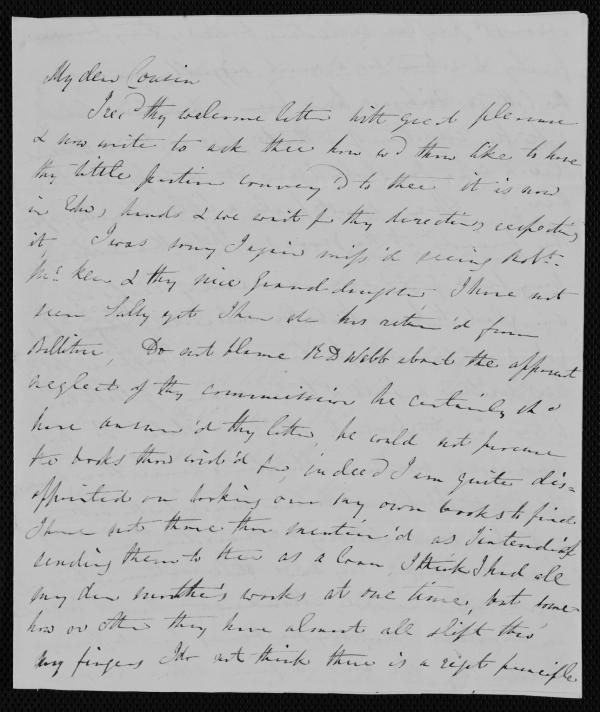 My dear Cousin
I recd thy welcome letter with great pleasure
& now write to ask thee how wd thou like to have
thy little portion convey'd to thee it is now
in Edws hands & we wait for thy directions respecting
it I was sorry I again miss'd seeing Robt
& thy nice Grand daughter I have not
seen Sally yet I hear she has return'd from
Ballitore, Do not blame R D Webb about the apparent
neglect of thy commission he certainly shd
have answer'd thy letter, he could not procure
the books thou wish'd for, indeed I am quite dis=
appointed on looking over my own books to find
I have not those thou mention'd as I intended
sending them to thee as a loan, I think I had all
my dear mother's works at one time, but some
how or other they have almost all slipt thro'
my fingers I do not think there is a right principle